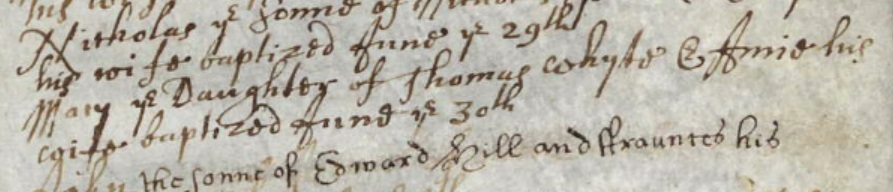 his
Nicholas ye sonne of
his wife baptized June ye 29th
Mary ye Daughter of Thomas Whyte & Amie his
wife baptized June ye 30th
the sonne of Edward Hill and ffraunces his